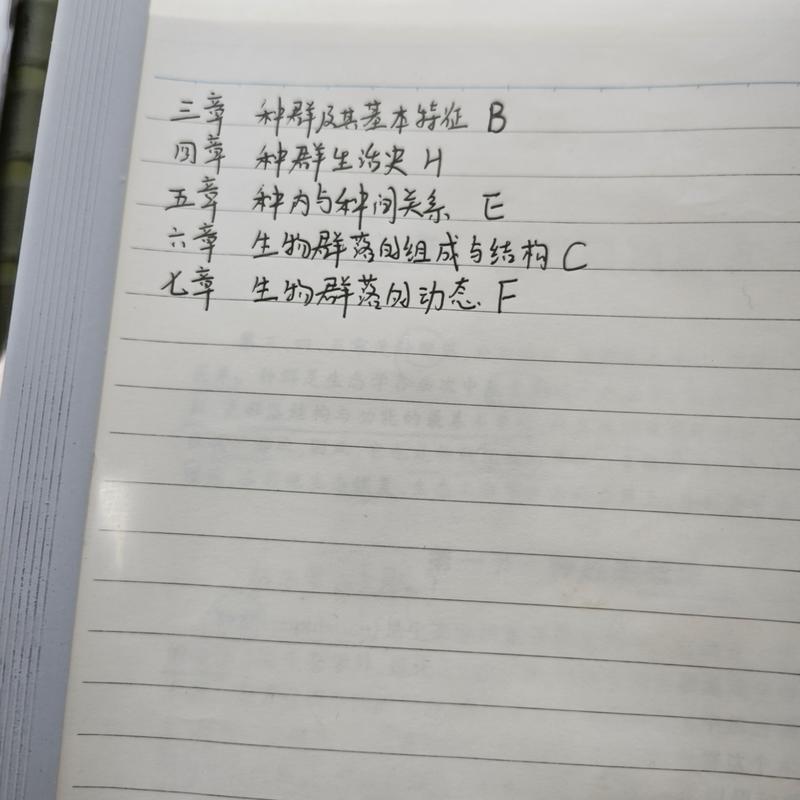 三章 种群及其基本特征 B
四章 种群生活史 H
五章 种内与种间关系 E
六章 生物群落的组成与结构 C
七章 生物群落的动态 F